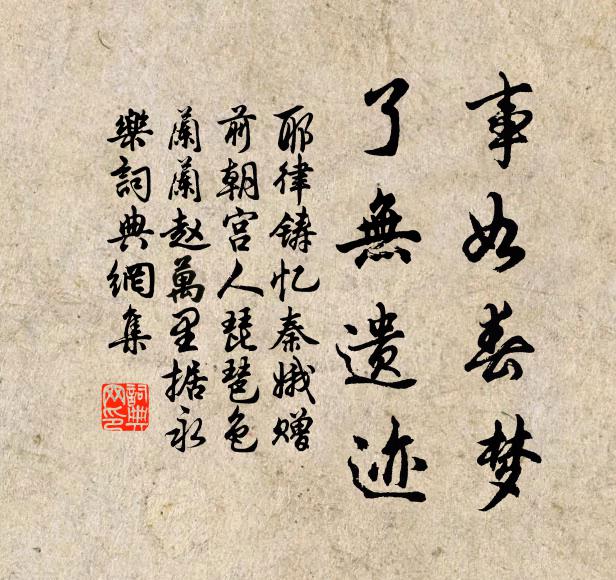 事如春梦
了無遗迹
耶律铸忆秦娥赠
前朝宫人琵琶色
蘭蘭赵萬里据永
樂詞典網集
詞典网印